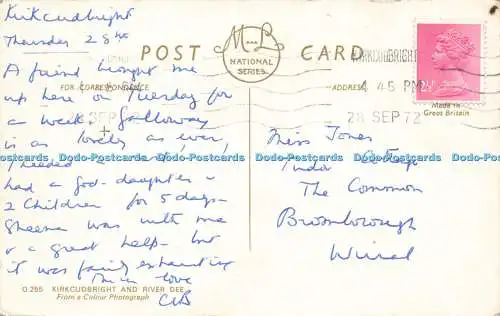 Kirkcudbright
Thursday 28th
POST CARD
M & L
NATIONAL
SERIES
FOR CORRESPONDENCE
ADDRESS
KIRKCUDBRIGHT
4 45 PM
28 SEP 72
2½
Made in
Great Britain
A friend brought me
up here on Tuesday for
a week. Galloway
is as lovely as ever,
I needed
had a god-daughter &
2 children for 5 days -
Sheena was with me
& a great help - but
it was fairly exhausting
love
CB
Miss Jones
Tudor Cottage
The Common
Bromborough
Wirral
Dodo-Postcards Dodo-Postcards Dodo-Postcards Dodo-Postcards
O.255 KIRKCUDBRIGHT AND RIVER DEE
From a Colour Photograph